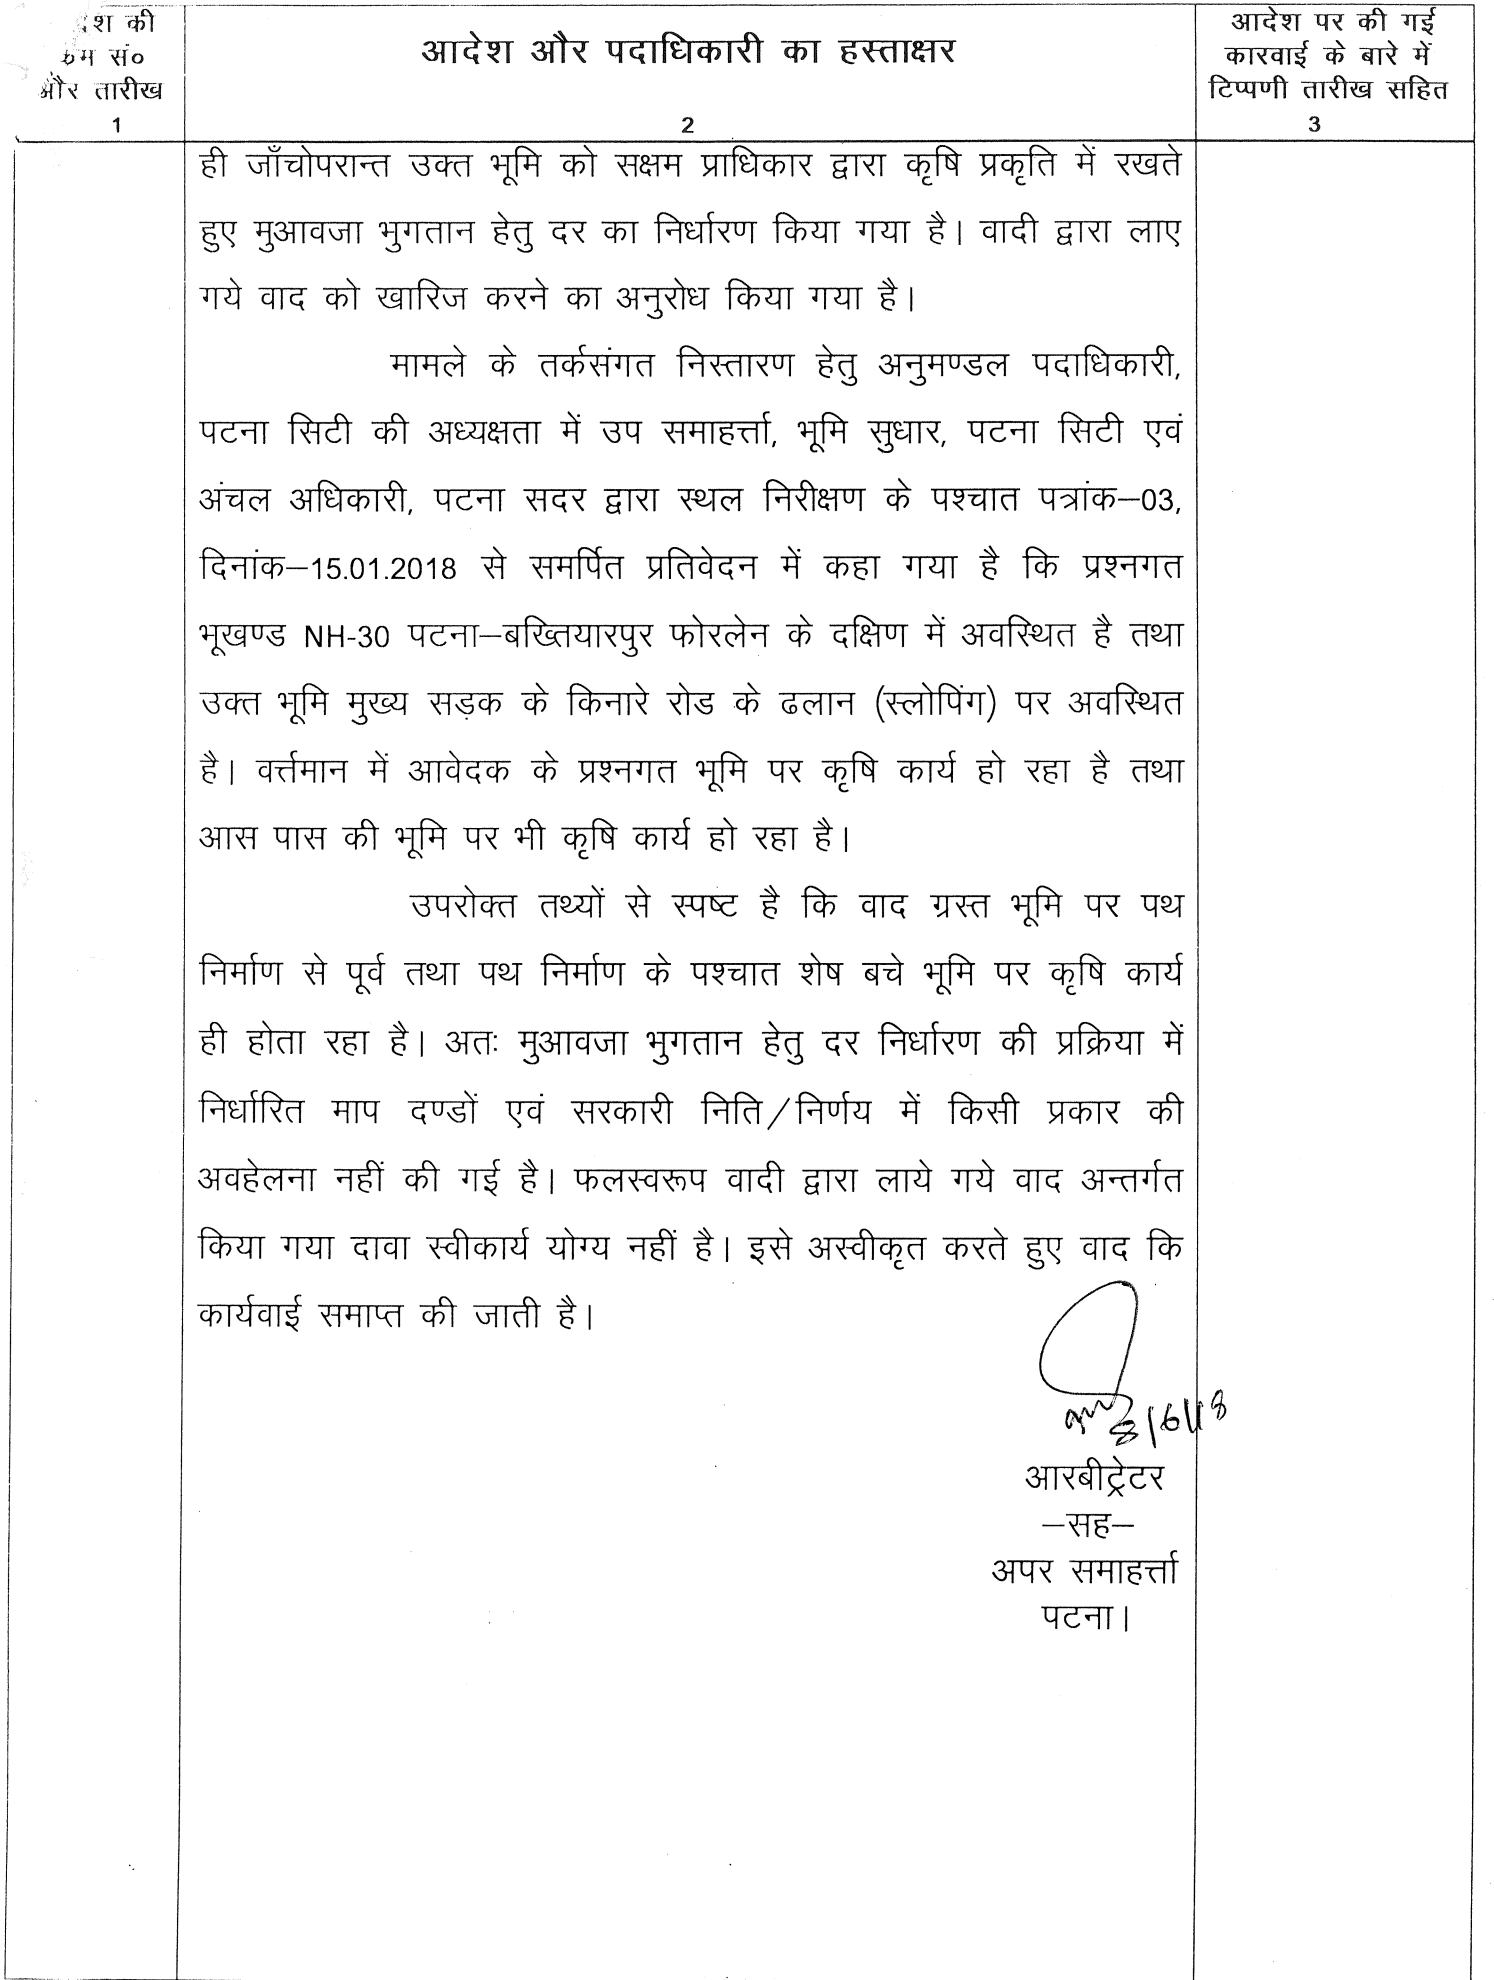 श की
क्रम सं०
और तारीख
1
आदेश और पदाधिकारी का हस्ताक्षर
2
आदेश पर की गई
कारवाई के बारे में
टिप्पणी तारीख सहित
3
ही जाँचोपरान्त उक्त भूमि को सक्षम प्राधिकार द्वारा कृषि प्रकृति में रखते
हुए मुआवजा भुगतान हेतु दर का निर्धारण किया गया है। वादी द्वारा लाए
गये वाद को खारिज करने का अनुरोध किया गया है।
मामले के तर्कसंगत निस्तारण हेतु अनुमण्डल पदाधिकारी,
पटना सिटी की अध्यक्षता में उप समाहर्त्ता, भूमि सुधार, पटना सिटी एवं
अंचल अधिकारी, पटना सदर द्वारा स्थल निरीक्षण के पश्चात पत्रांक–03,
दिनांक–15.01.2018 से समर्पित प्रतिवेदन में कहा गया है कि प्रश्नगत
भूखण्ड NH-30 पटना–बख्तियारपुर फोरलेन के दक्षिण में अवस्थित है तथा
उक्त भूमि मुख्य सड़क के किनारे रोड के ढलान (स्लोपिंग) पर अवस्थित
है। वर्त्तमान में आवेदक के प्रश्नगत भूमि पर कृषि कार्य हो रहा है तथा
आस पास की भूमि पर भी कृषि कार्य हो रहा है।
उपरोक्त तथ्यों से स्पष्ट है कि वाद ग्रस्त भूमि पर पथ
निर्माण से पूर्व तथा पथ निर्माण के पश्चात शेष बचे भूमि पर कृषि कार्य
ही होता रहा है। अतः मुआवजा भुगतान हेतु दर निर्धारण की प्रक्रिया में
निर्धारित माप दण्डों एवं सरकारी निति/निर्णय में किसी प्रकार की
अवहेलना नहीं की गई है। फलस्वरूप वादी द्वारा लाये गये वाद अन्तर्गत
किया गया दावा स्वीकार्य योग्य नहीं है। इसे अस्वीकृत करते हुए वाद कि
कार्यवाई समाप्त की जाती है।
8/6/18
आरबीट्रेटर
–सह–
अपर समाहर्त्ता
पटना।